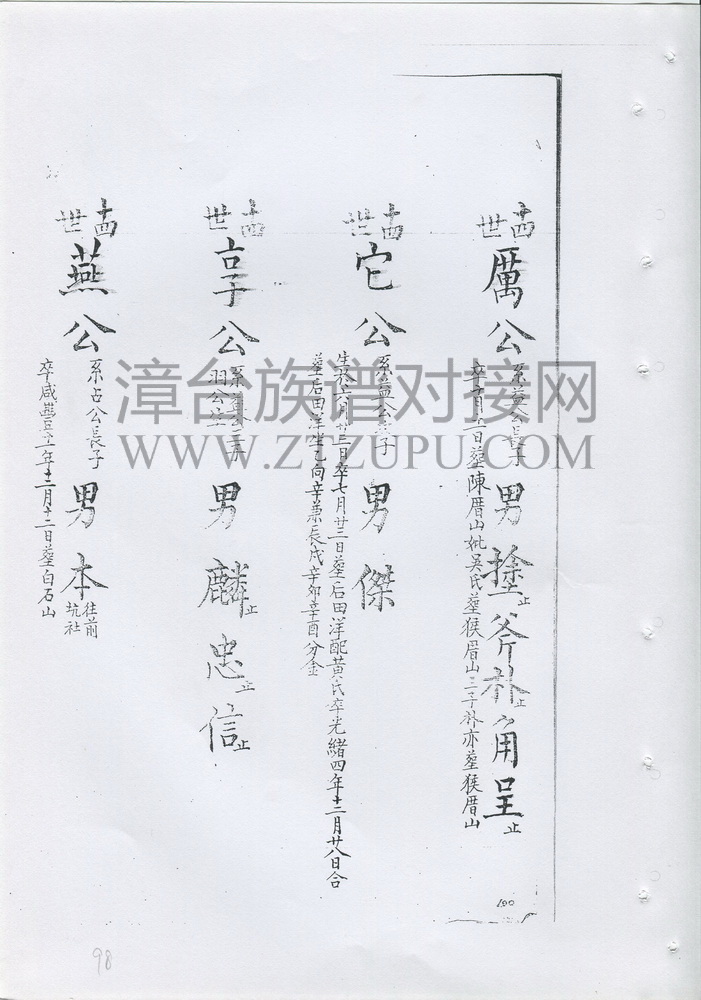 十四世
厲公
系益公長子
男塗止斧朴止角呈止
陳厝山妣吳氏墓猴厝山三子朴亦墓猴厝山
十四世
它公
男傑
廿三日卒七月廿三日墓后田洋配黃氏卒光緒四年十二月廿八日合
墓后田洋坐乙向辛兼辰戌辛卯辛酉分金
十四世
享公
男麟止忠止信止
十四世
燕公
系占公長子
卒咸豐五年十二月十二日墓白石山
男本
往前
坑社
100
98
漳台族谱对接网
WWW.ZTZUPU.COM